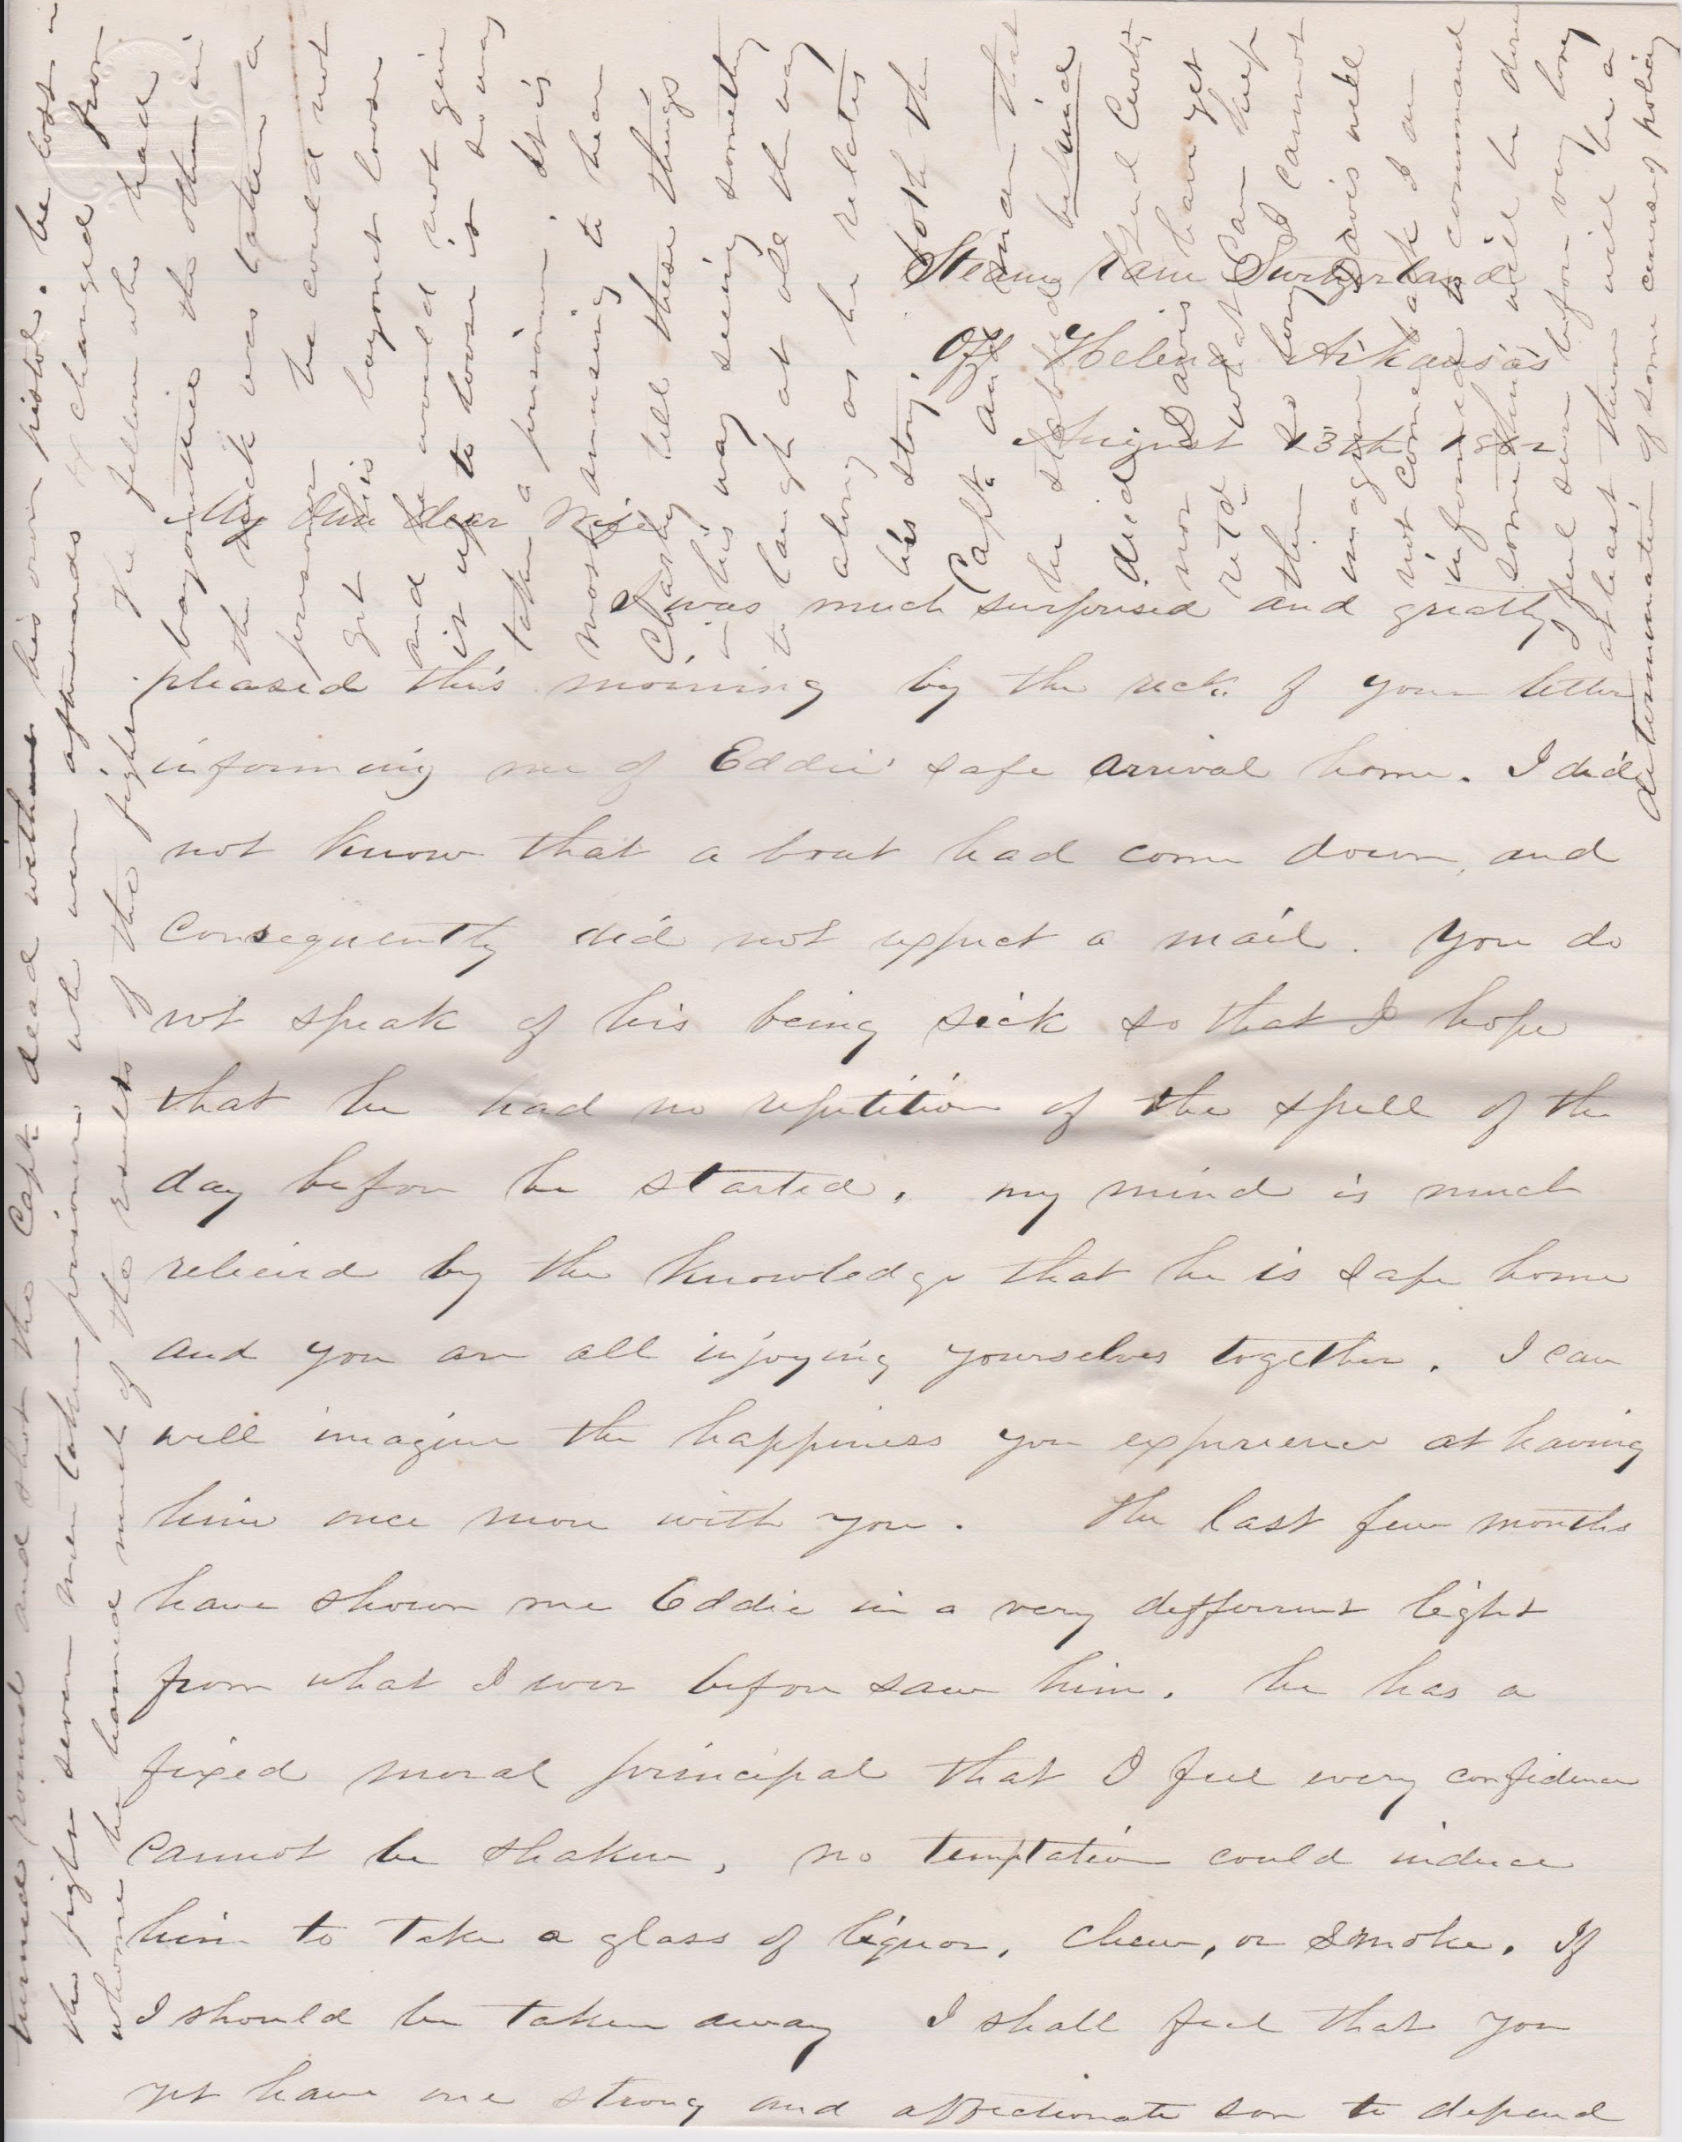 Steam Ram Switzerland
Off Helena Arkansas
August 13th 1862
My Own dear Wife
I was much surprised and greatly
pleased this morning by the rect. of your letter
informing me of Eddie' safe arrival home. I did
not know that a boat had come down, and
consequently did not expect a mail. You do
not speak of his being sick so that I hope
that he had no repitition of the spell of the
day before he started. my mind is much
relieved by the knowledge that he is safe home
and you are all injoying yourselves together. I can
well imagine the happiness you experience at having
him once more with you. The last few months
have shown me Eddie in a very different light
from what I ever before saw him. he has a
fixed moral principal that I feel every confidence
cannot be shaken, no temptation could induce
him to take a glass of liquor, chew, or smoke. If
I should be taken away I shall feel that you
yet have one strong and affectionate son to depend
turned round and shot the Capt dead with his own pistol. he lost in
the fight seven men taken prisoners who were afterwards exchanged from
whome he learned much of the results of the fight. The fellow who had
bayonetted the other in
the neck was taken a
prisoner he could not
get his bayonet loose
and he would not give
it up to loose it so was
taken a prisoner. It is
most amusing to hear
Charly tell these things
in his way seeing something
to laugh at all the way
along as he relates
his story. both the
Capt. and man that
he stabbed behind
died. Davis
nor Genl Curtis have yet
retd what can keep
them so long I cannot
imagine Davis will
not come back I am
informed to command
something will be done
I feel sure before very long
at least there will be a
determination of some cause of policy